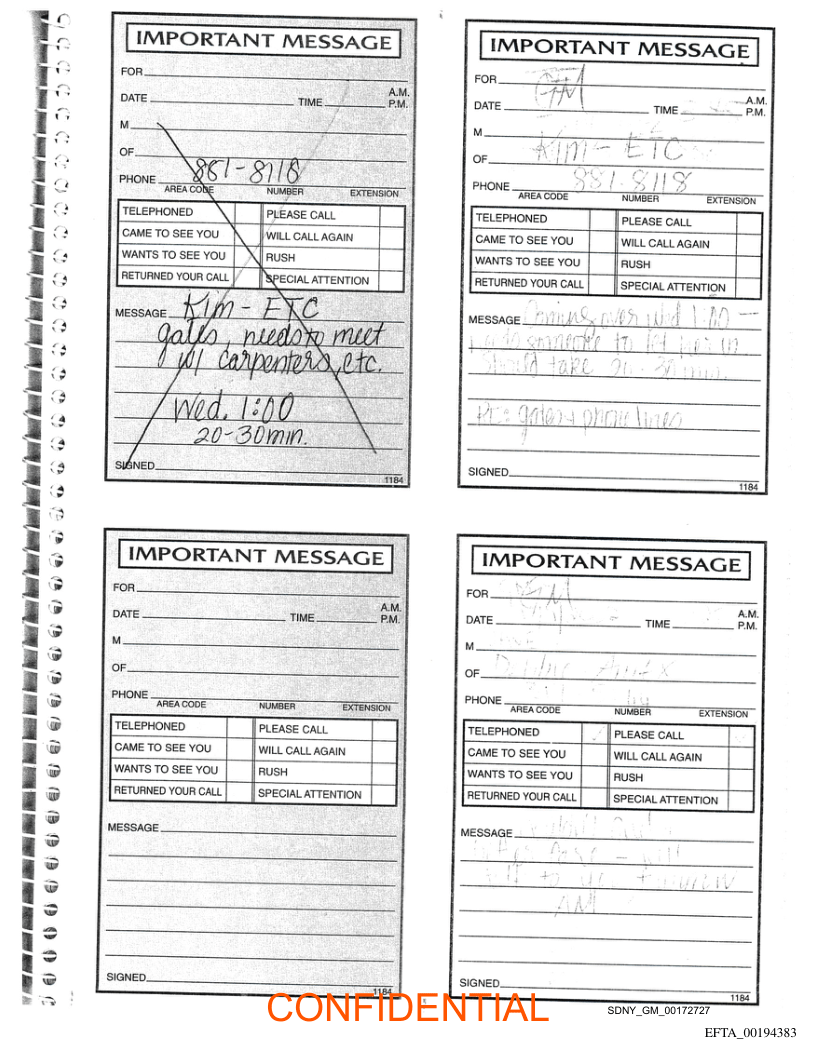 IMPORTANT MESSAGE
FOR
DATE TIME A.M. P.M.
M
OF
PHONE 881-8118
AREA CODE NUMBER EXTENSION
TELEPHONED PLEASE CALL
CAME TO SEE YOU WILL CALL AGAIN
WANTS TO SEE YOU RUSH
RETURNED YOUR CALL SPECIAL ATTENTION
MESSAGE Kim - ETC
gates, needs to meet
w/ carpenters, etc.
Wed. 1:00
20-30 min.
SIGNED
1184
IMPORTANT MESSAGE
FOR GM
DATE TIME A.M. P.M.
M
OF Kim - ETC
PHONE 881-8118
AREA CODE NUMBER EXTENSION
TELEPHONED PLEASE CALL
CAME TO SEE YOU WILL CALL AGAIN
WANTS TO SEE YOU RUSH
RETURNED YOUR CALL SPECIAL ATTENTION
MESSAGE Coming over Wed 1:00 -
someone to let her in
should take 20-30 min.
Re: gates + phone lines
SIGNED
1184
IMPORTANT MESSAGE
FOR
DATE TIME A.M. P.M.
M
OF
PHONE
AREA CODE NUMBER EXTENSION
TELEPHONED PLEASE CALL
CAME TO SEE YOU WILL CALL AGAIN
WANTS TO SEE YOU RUSH
RETURNED YOUR CALL SPECIAL ATTENTION
MESSAGE
SIGNED
1184
IMPORTANT MESSAGE
FOR GM
DATE TIME A.M. P.M.
M
OF
PHONE
AREA CODE NUMBER EXTENSION
TELEPHONED PLEASE CALL
CAME TO SEE YOU WILL CALL AGAIN
WANTS TO SEE YOU RUSH
RETURNED YOUR CALL SPECIAL ATTENTION
MESSAGE
will
to you tomorrow
AM
SIGNED
1184
CONFIDENTIAL
SDNY_GM_00172727
EFTA_00194383